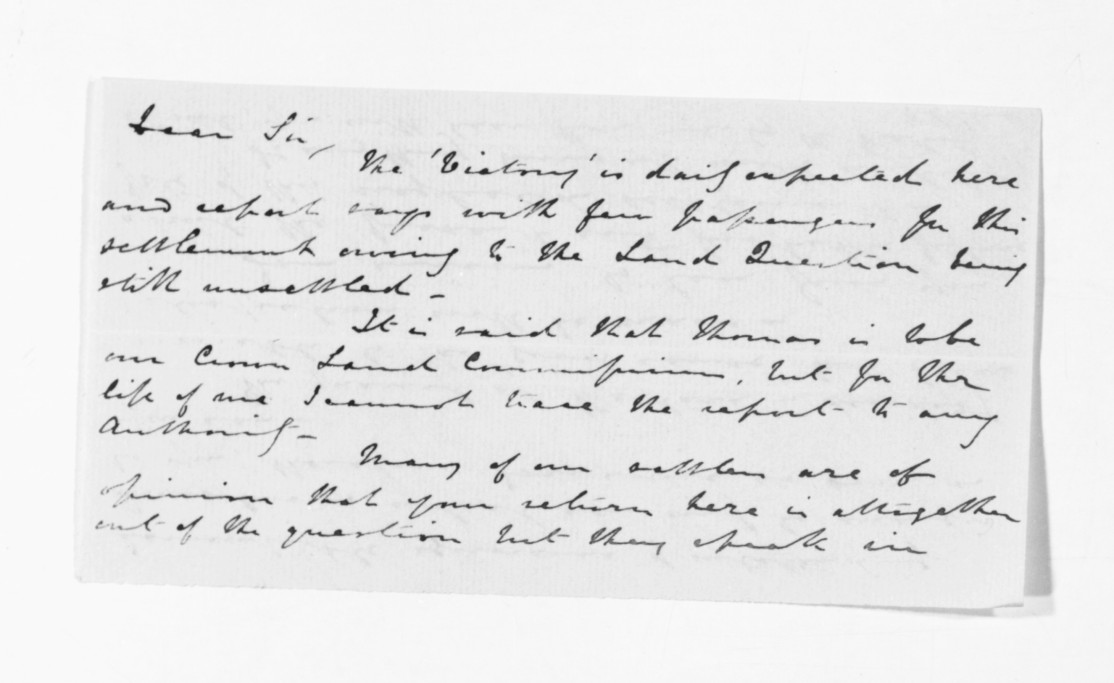 Dear Sir,
The 'Victory' is daily expected here
and report says with few passengers for this
settlement owing to the Land Question being
still unsettled –
It is said that Thomas is to be
our Crown Land Commissioner, but for the
life of me I cannot trace the report to any
Authority –
Many of our settlers are of
opinion that your return here is altogether
out of the question but they speak in